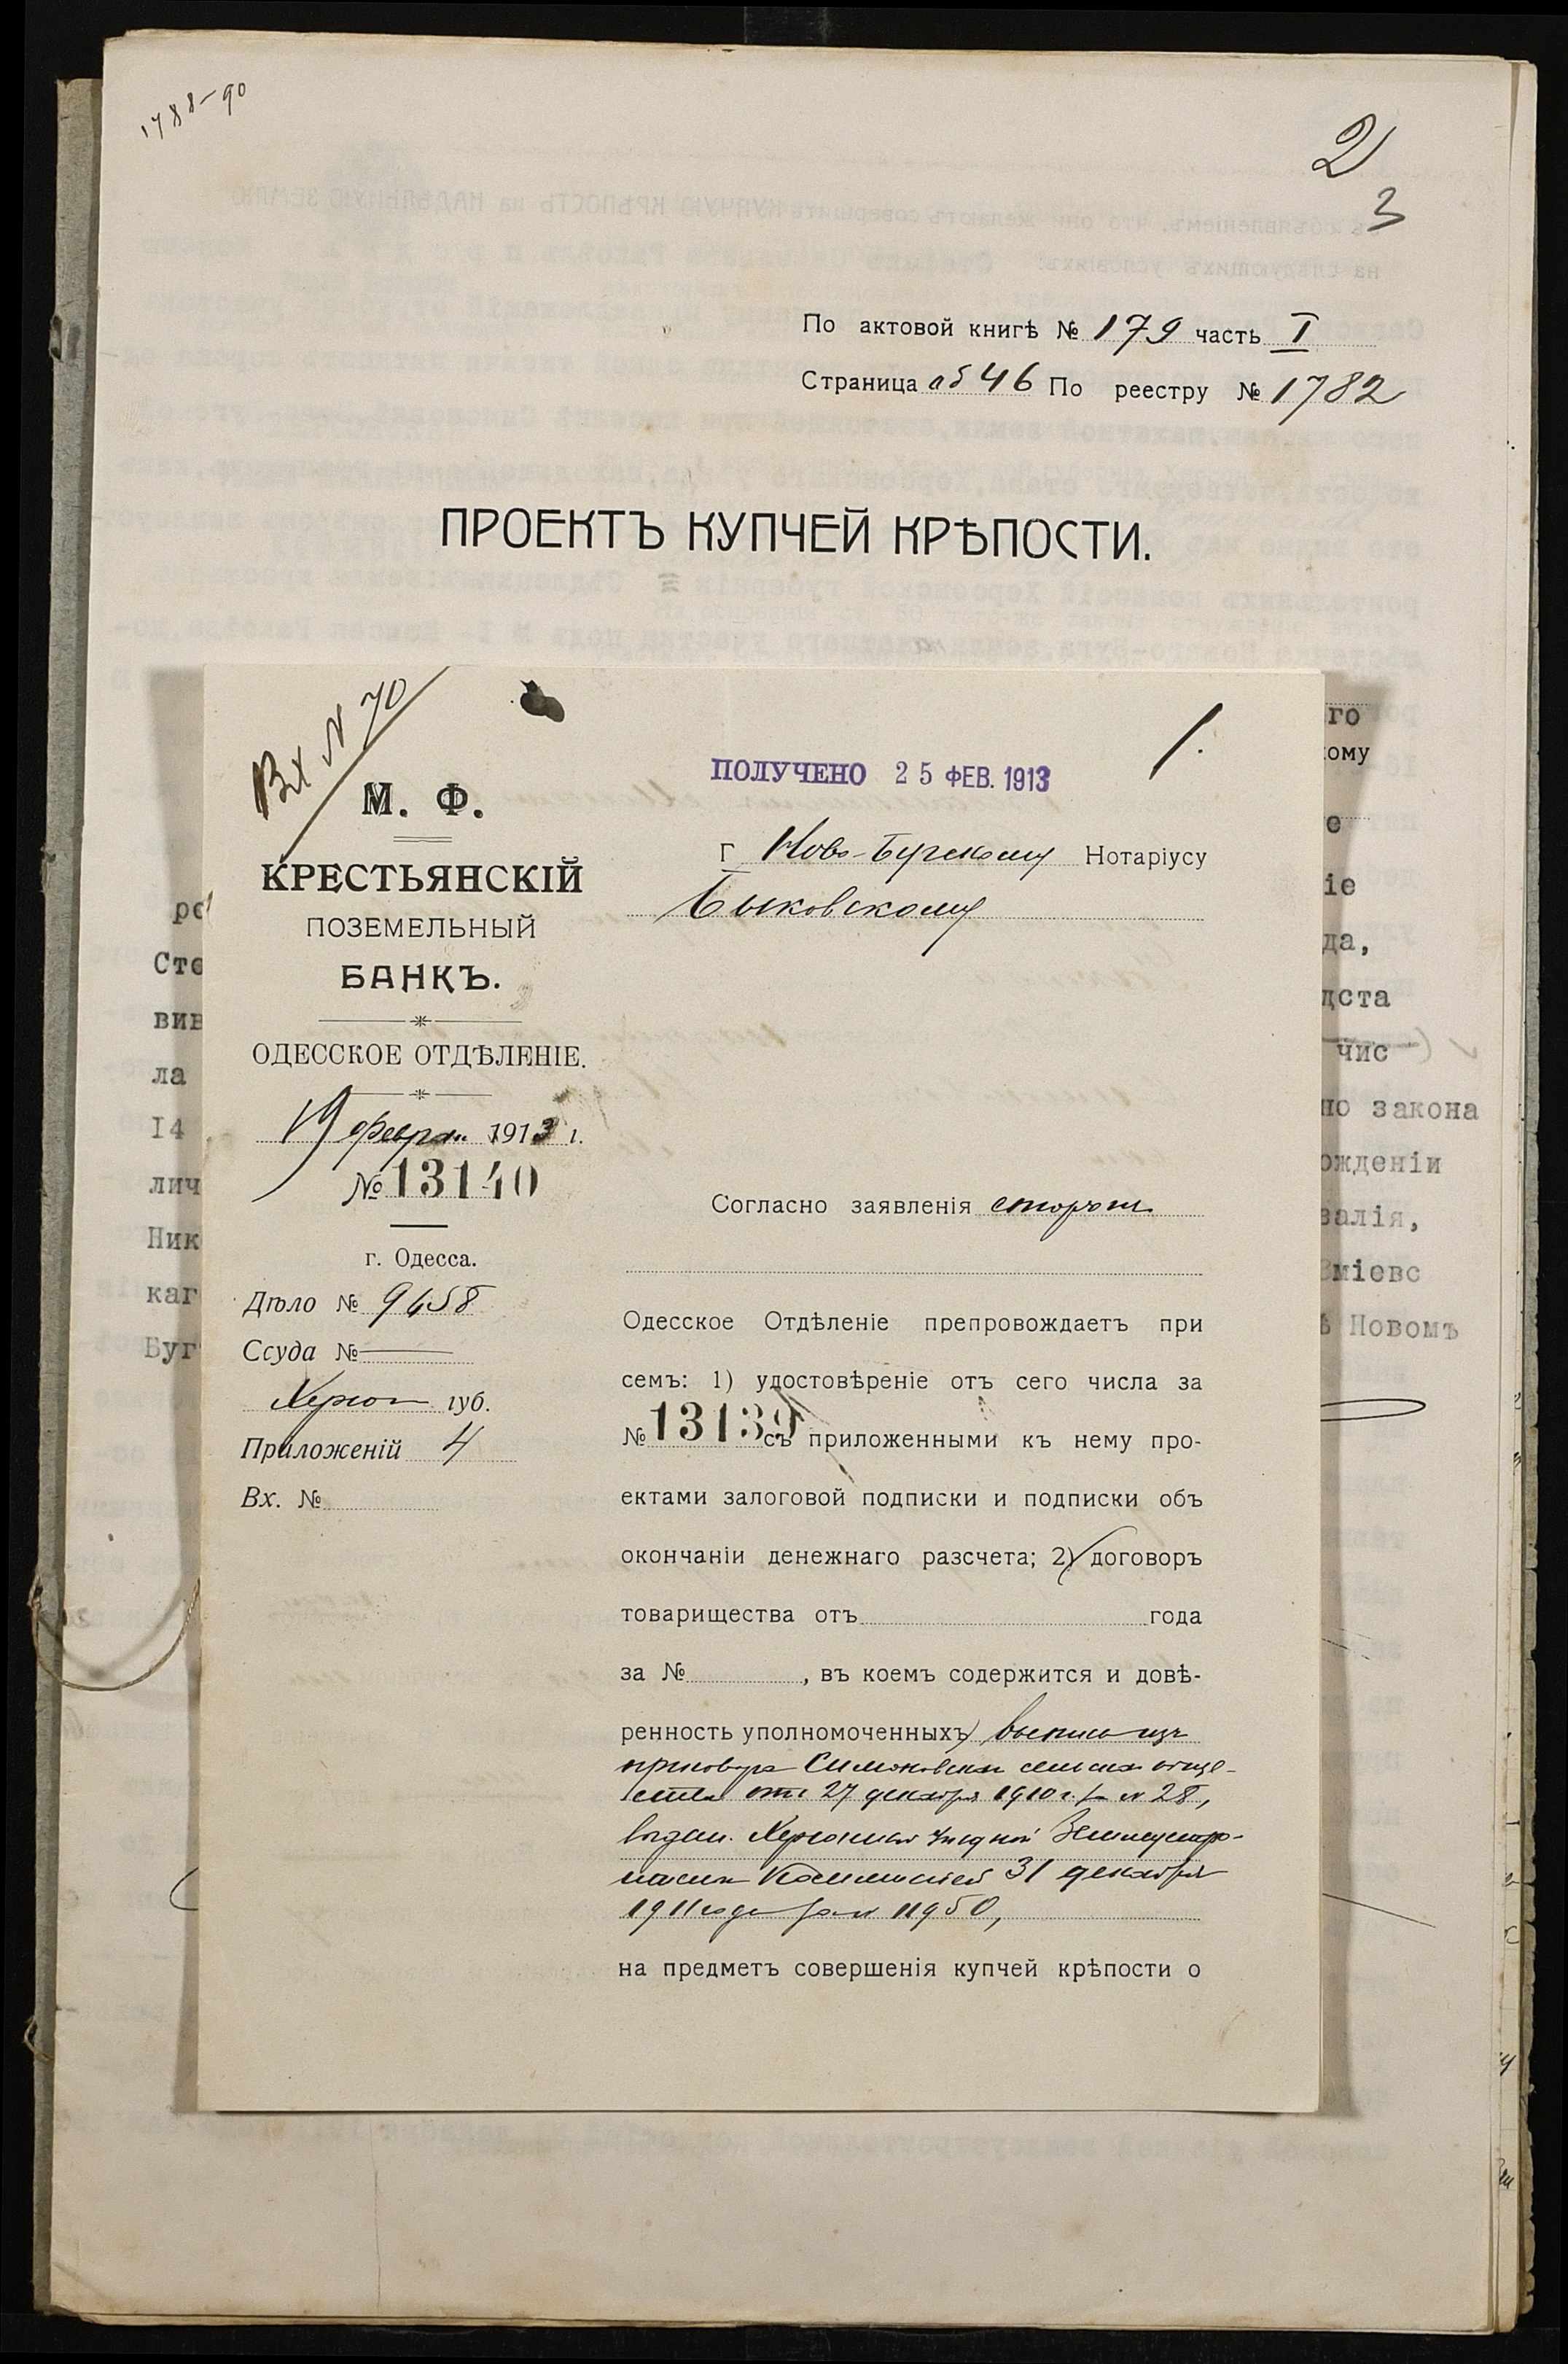 1788-90
2
3
По актовой книгѣ № 179 часть I
Страница об 46 По реестру № 1782
ПРОЕКТЪ КУПЧЕЙ КРѢПОСТИ.
Вх N 70
1.
М. Ф.
КРЕСТЬЯНСКІЙ
ПОЗЕМЕЛЬНЫЙ
БАНКЪ.
ОДЕССКОЕ ОТДѢЛЕНІЕ.
19 феврал 1913 г.
№ 13140
г. Одесса.
Дѣло № 9458
Ссуда №
Херсон губ.
Приложеній 4
Вх. №
ПОЛУЧЕНО 25 ФЕВ. 1913
Г Ново-Бугскому Нотаріусу
Быковскому
Согласно заявленія сторон
Одесское Отдѣленіе препровождаетъ при
семъ: 1) удостовѣреніе отъ сего числа за
№ 13139 съ приложенными къ нему про-
ектами залоговой подписки и подписки объ
окончаніи денежнаго разсчета; 2) договоръ
товарищества отъ года
за № , въ коемъ содержится и довѣ-
ренность уполномоченныхъ) выпись изъ
приговора Симоновскаго сельскаго обще-
ства отъ 27 декабря 1910 г. за № 28,
выдан. Херсонской Уѣздной Землеустро-
ительн Комиссіей 31 декабря
1911 года за № 11950,
на предметъ совершенія купчей крѣпости о
ро
Сте
вив
ла
14
лич
Ник
каг
Буг
го
кому
е
іе
да,
дста
чис
но закона
ожденіи
валія,
Зміевс
ѣ Новомъ